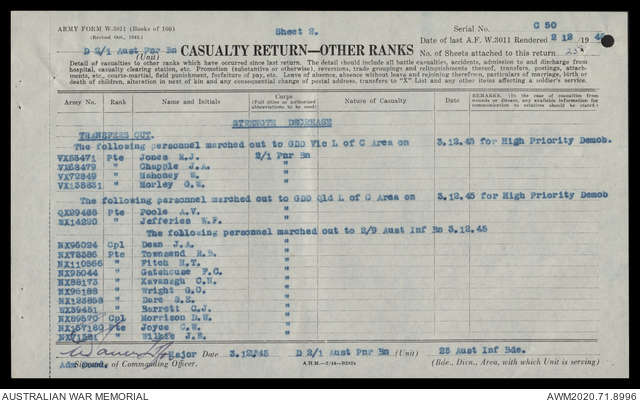 ARMY FORM W.3011 (Books of 100)
(Revised Oct., 1943.)
Sheet 2.
Serial No. C 50
Date of last A.F. W.3011 Rendered 2 12 1945
D 2/1 Aust Pnr Bn
(Unit)
CASUALTY RETURN—OTHER RANKS
No. of Sheets attached to this return
Detail of casualties to other ranks which have occurred since last return. The detail should include all battle casualties, accidents, admission to and discharge from
hospital, casualty clearing station, etc. Promotion (substantive or otherwise), reversions, trade groupings and relinquishments thereof, transfers, postings, attach-
ments, etc., courts-martial, field punishment, forfeiture of pay, etc. Leave of absence, absence without leave and rejoining therefrom, particulars of marriage, birth or
death of children, alteration in next of kin and any consequential change of postal address, transfers to "X" List and any other items affecting a soldier's service.
Army No. Rank Name and Initials Corps (Full titles or authorized abbreviations to be used) Nature of Casualty Date REMARKS. (In the case of casualties from wounds or disease, any available information for communication to relatives should be stated.)
STRENGTH DECREASE
TRANSFERS OUT.
The following personnel marched out to GDD Vic L of C Area on 3.12.45 for High Priority Demob.
VX55471 Pte Jones R.J. 2/1 Pnr Bn
VX68479 " Chapple J.A. "
VX72849 " Mahoney W. "
VX138831 " Morley G.W. "
The following personnel marched out to GDD Qld L of C Area on 3.12.45 for High Priority Demob
QX29486 Pte Poole A.V. "
WX14220 " Jefferies W.F. "
The following personnel marched out to 2/9 Aust Inf Bn 3.12.45
NX95024 Cpl Dean J.A. "
NX78386 Pte Townsend R.B. "
NX110566 " Fitch H.T. "
NX93044 " Gatehouse F.C. "
NX88173 " Kavanagh C.N. "
NX96188 " Wright G.O. "
NX123858 " Dare S.E. "
WX39451 " Barrett C.J. "
NX89570 Cpl Morrison D.W. "
NX157160 Pte Joyce C.W. "
" Wilkie J.W. "
Major Date 3.12.45 D 2/1 Aust Pnr Bn (Unit) 25 Aust Inf Bde.
Signature of Commanding Officer. (Bde., Divn., Area, with which Unit is serving)
AUSTRALIAN WAR MEMORIAL
AWM2020.71.8996